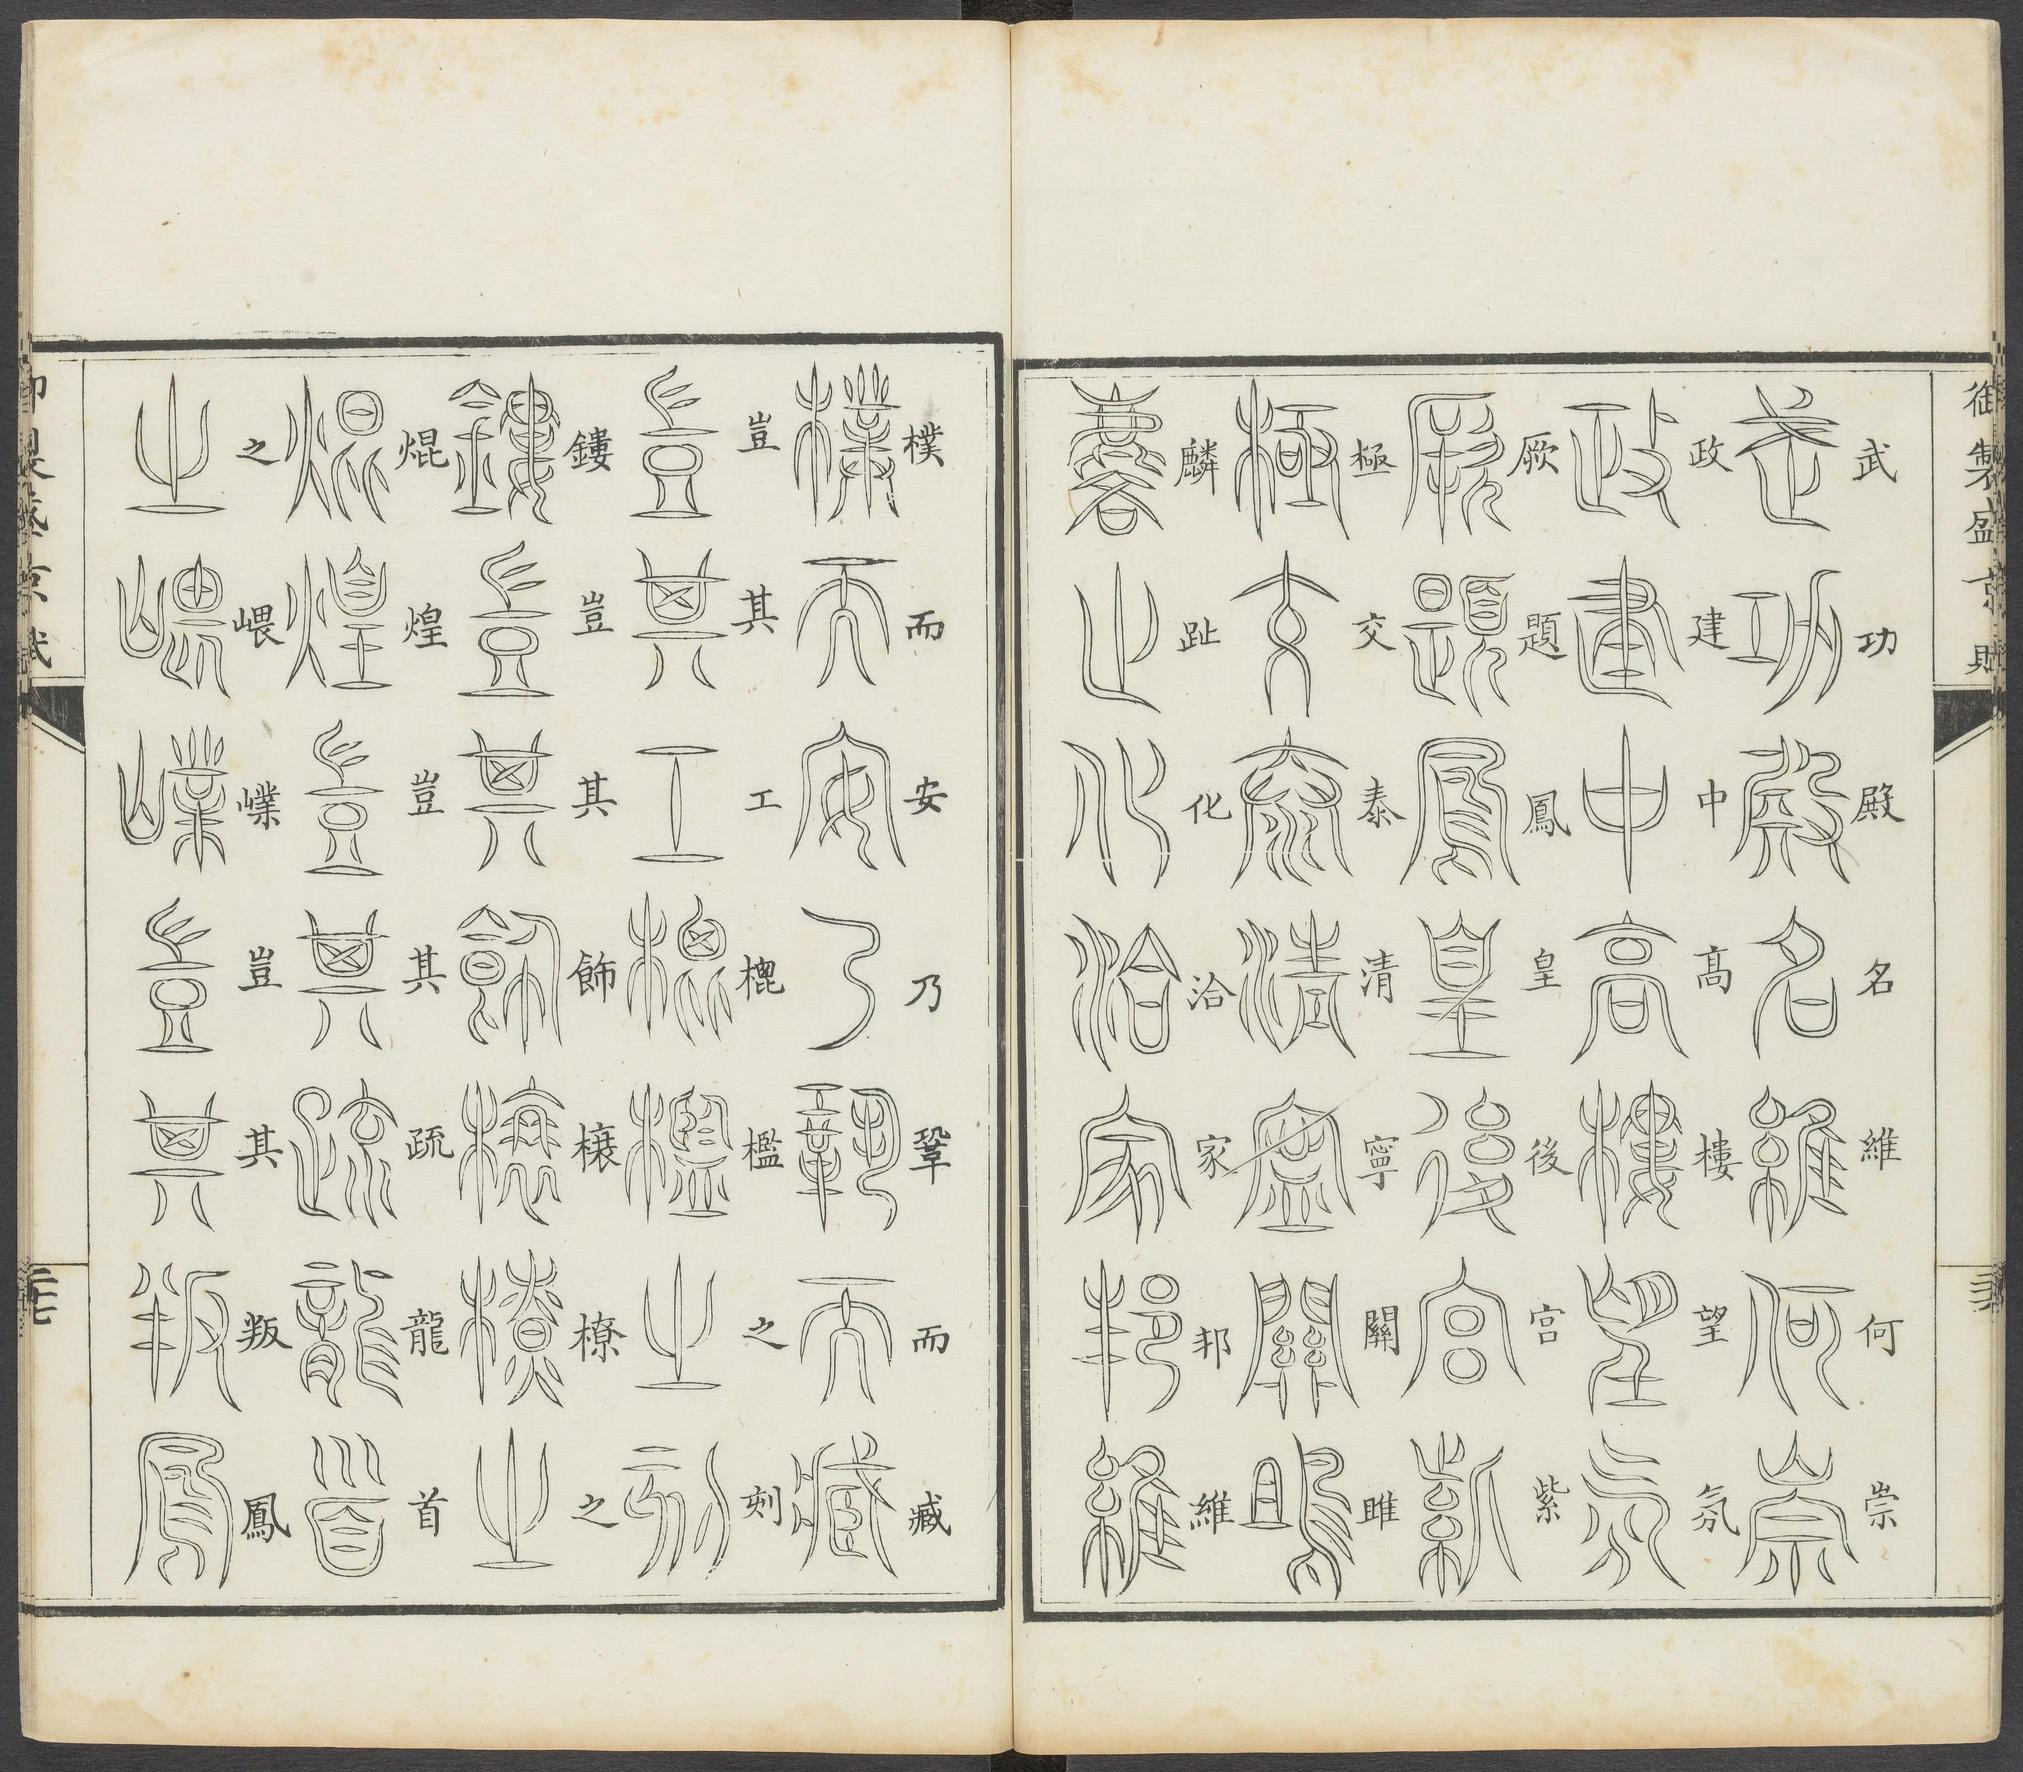 御製盛京賦
武功殿名維何崇
政建中高樓望氛
厥題鳳皇後宮紫
極交泰清寧關雎
麟趾化洽家邦維
樸而安乃鞏而臧
豈其工㮰檻之刻
鏤豈其飾榱橑之
焜煌豈其疏龍首
之㠕㠔豈其叛鳳
二十七